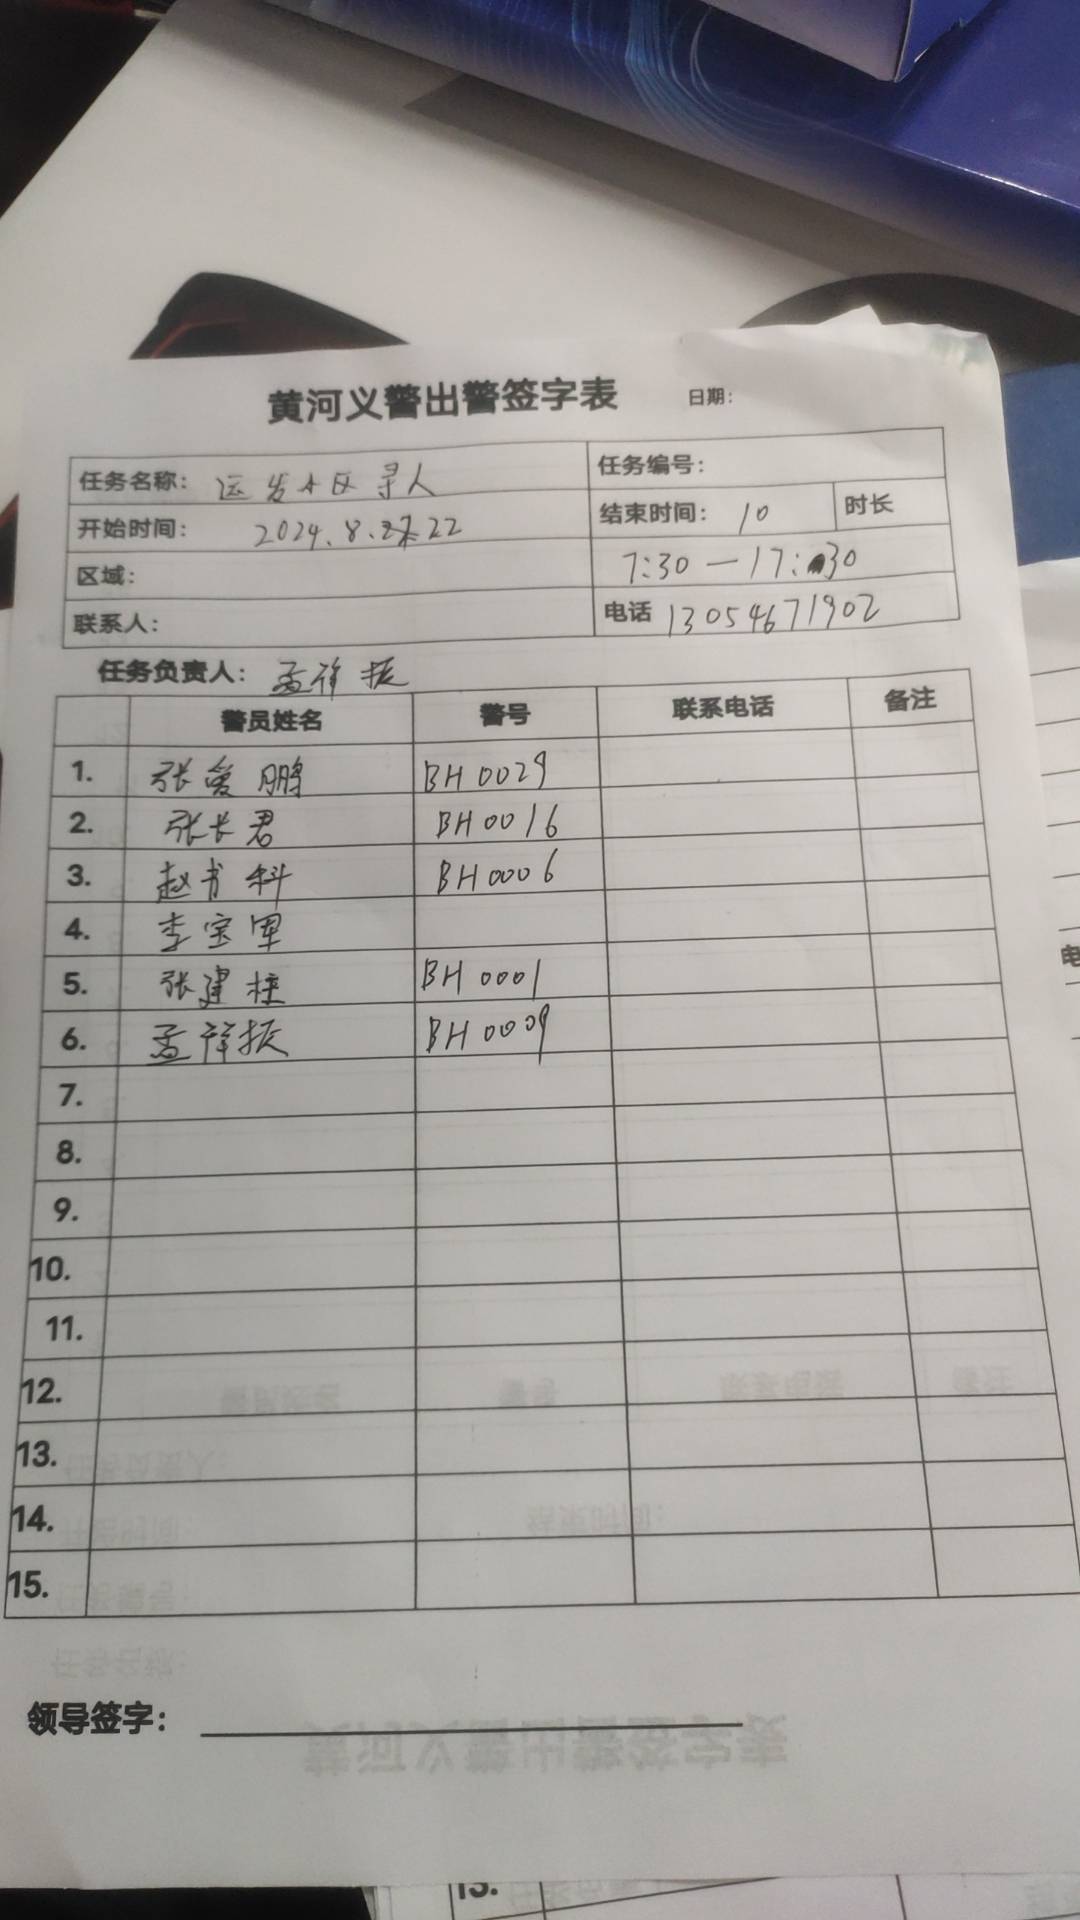 黄河义警出警签字表 日期:
任务名称: 运发小区寻人 任务编号:
开始时间: 2024.8.22 结束时间: 10 时长
区域: 7:30—17:30
联系人: 电话 13054671902
任务负责人: 孟祥振
警员姓名 警号 联系电话 备注
1. 张爱鹏 BH0029
2. 张长君 BH0016
3. 赵书科 BH0006
4. 李宝军
5. 张建柱 BH0001
6. 孟祥振 BH0009
7.
8.
9.
10.
11.
12.
13.
14.
15.
领导签字: